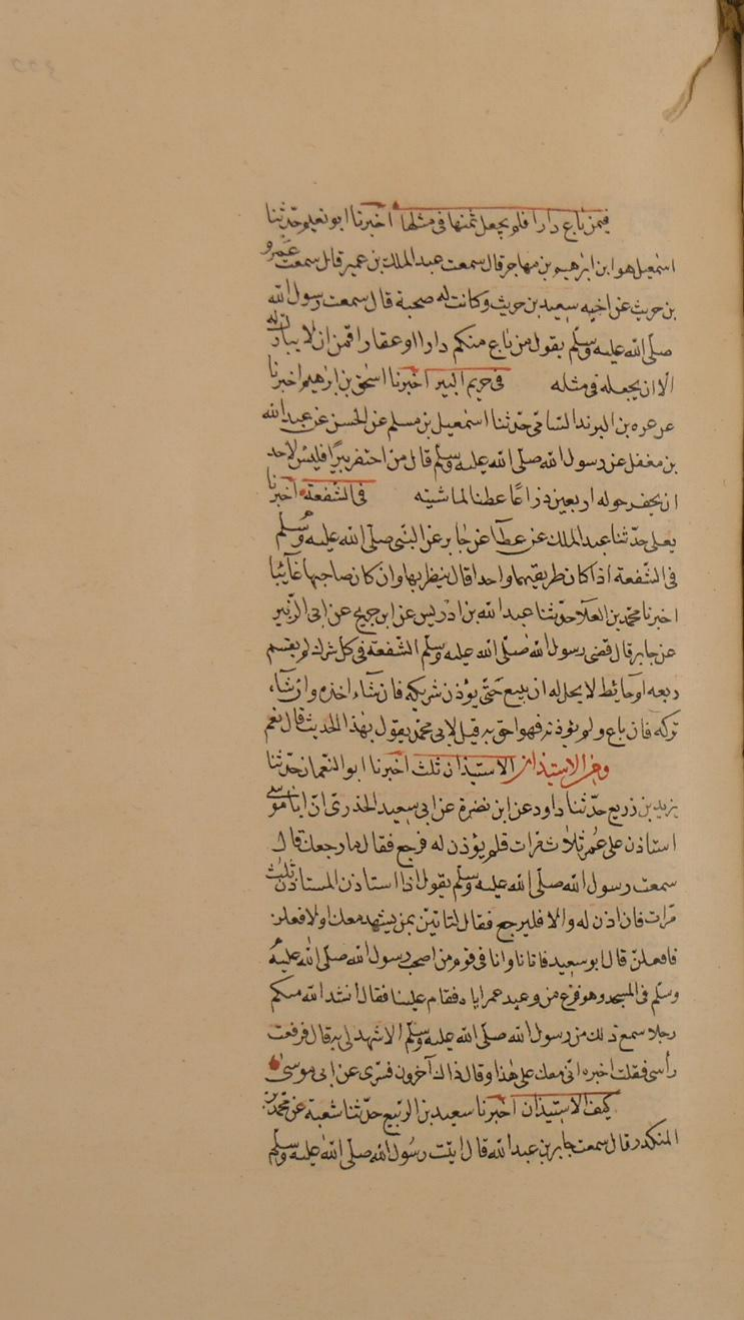 فيمن باع دارا فلم يجعل ثمنها في مثلها اخبرنا ابو نعيم حدثنا
اسمعيل هو ابن ابرهيم بن مهاجر قال سمعت عبد الملك بن عمير قال سمعت عمرو
بن حريث عن اخيه سعيد بن حريث وكانت له صحبة قال سمعت رسول الله
صلى الله عليه وسلم يقول من باع منكم دارا او عقارا قمن ان لا يبارك له
الا ان يجعله في مثله في حريم البير اخبرنا اسحق بن ابرهيم اخبرنا
عرعره بن البرند السامي حدثنا اسمعيل بن مسلم عن الحسن عن عبد الله
بن مغفل عن رسول الله صلى الله عليه وسلم قال من احتفر بيرًا فليس لاحد
ان يحفر حوله اربعين ذراعًا عطنا لماشيته في الشفعة اخبرنا
يعلى حدثنا عبد الملك عن عطآ عن جابر عن النبي صلى الله عليه وسلم
في الشفعة اذا كان طريقهما واحدا قال ينظر بها وان كان صاحبها غآئبا
اخبرنا محمد بن العلآ حدثنا عبد الله بن ادريس عن ابن جريج عن ابى الزبير
عن جابر قال قضى رسول الله صلى الله عليه وسلم الشفعة في كل شرك لم يقسم
ربعه او حائط لا يحل له ان يبيع حتى يؤذن شريكه فان شاء اخذه وان شاء
تركه فان باع ولم يؤذنه فهو احق به قيل لابى محمد يقول بهذا الحديث قال نعم
ومن الاستيذان الاستيذان ثلث اخبرنا ابو النعمان حدثنا
يزيد بن زريع حدثنا داود عن ابى نضرة عن ابى سعيد الخدرى ان ابا موسى
استاذن على عمر ثلاث مرات فلم يؤذن له فرجع فقال ما رجعك قال
سمعت رسول الله صلى الله عليه وسلم يقول اذا استاذن المستاذن ثلث
مرات فان اذن له والا فليرجع فقال لتاتين بمن يشهد معك او لافعلن
فافعلن قال ابو سعيد فاتانا وانا في قوم من اصحب رسول الله صلى الله عليه
وسلم في المسجد وهو فزع من وعيد عمر اياه فقام علينا فقال انشد الله منكم
رجلا سمع ذلك من رسول الله صلى الله عليه وسلم الا شهد لى به قال فرفعت
رأسى فقلت اخبره انى معك على هذا وقال ذاك آخرون فسرى عن ابى موسى
كيف الاستيذان اخبرنا سعيد بن الربيع حدثنا شعبة عن محمد بن
المنكدر قال سمعت جابر بن عبد الله قال اتيت رسول الله صلى الله عليه وسلم